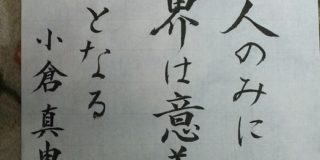 人のみに
界は意義
となる
小倉真由